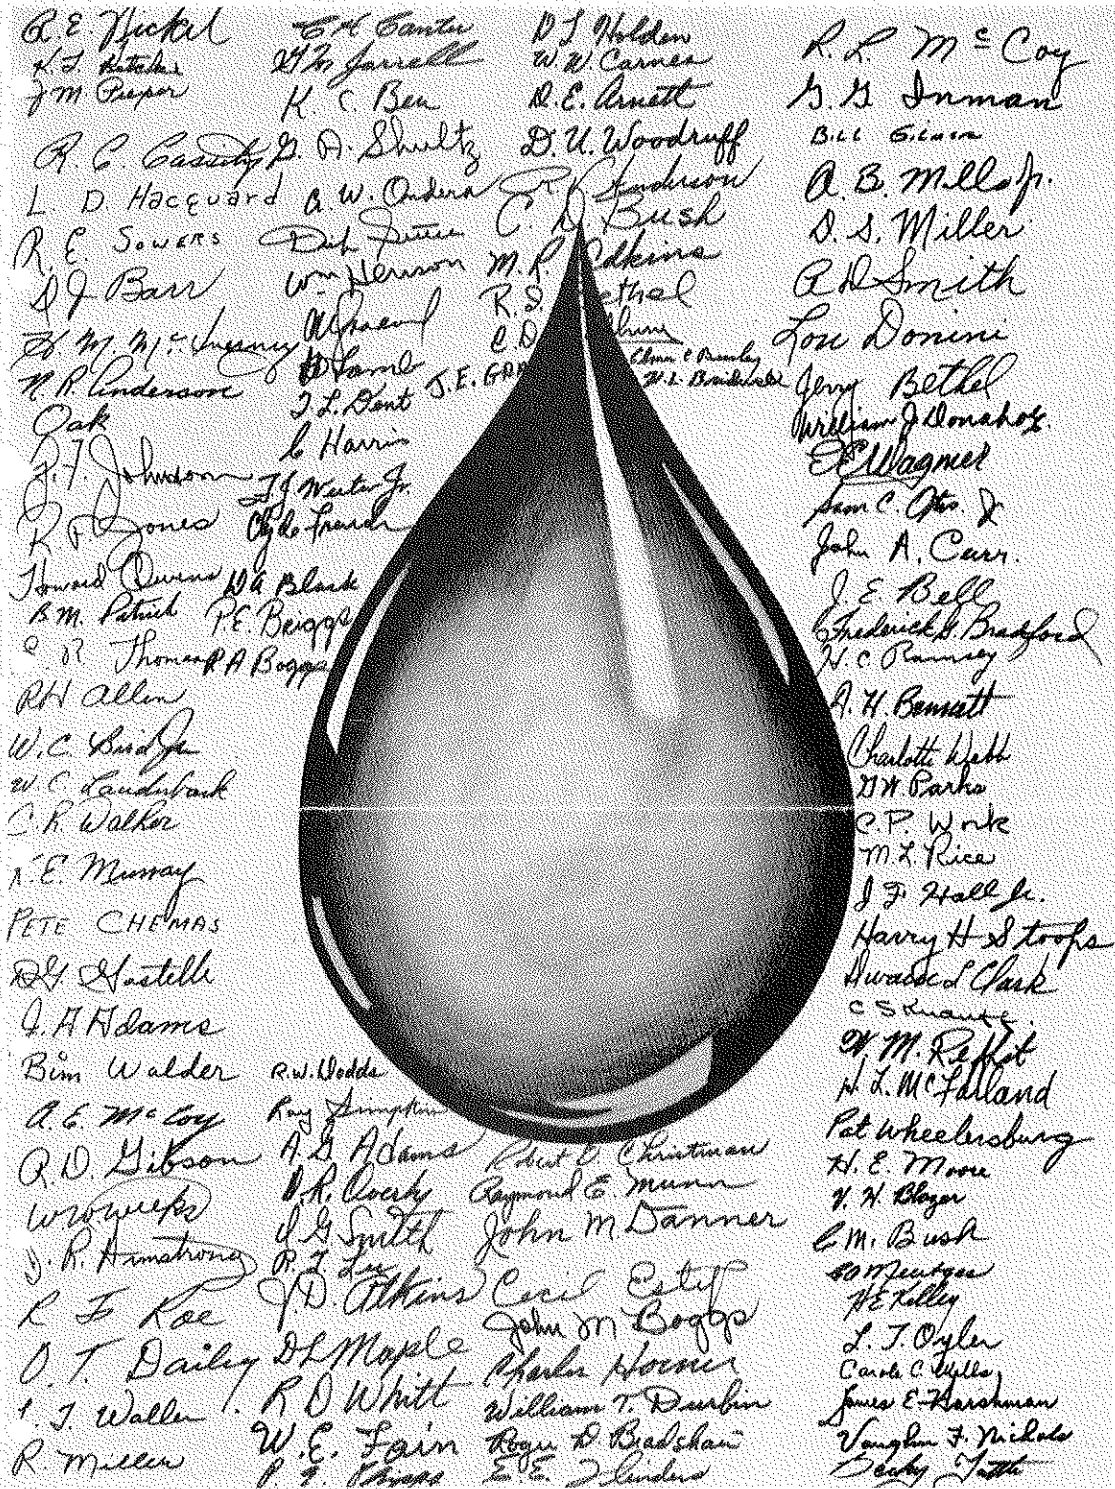 R. E. Nickel
J M Pieper
R. C. Cassity
L. D Hacquard
R. E. SOWERS
D J Barr
N. R. Anderson
Oak
J. F. Johnson
R P Jones
Howard Owens
B. M. Patrick
C R Thomas
RH Allen
W. C. Bird Jr
W C Lauderback
C. R. Walker
N. E. Murray
PETE CHEMAS
J. A Adams
Bim Walder
A. E. McCoy
R. D. Gibson
J. R. Armstrong
R F Roe
O. T. Dailey
T. J. Waller
R. Miller
C H Canter
G M Jarrell
K C. Ben
G. A. Shultz
Wm Henson
D Lamb
J. L. Dent
C Harris
Clyde French
D A Black
P. E. Briggs
R A Boggs
R. W. Dodds
Ray Simpkins
A. G Adams
D. R. Overly
D G Smith
R. L. Lee
J D. Atkins
D L Maple
R D Whitt
W. E. Fain
D J Holden
W. W. Carnes
D. E. Arnett
D. U. Woodruff
R Anderson
C. D. Bush
M. R. Adkins
R. J. Bethel
C. D.
J. E.
Robert O. Christman
Raymond E. Munn
John M Danner
Cecil Estep
John M Boggs
Charles Horner
William T. Durbin
Roger D Bradshaw
E. E. Flinders
R. L. McCoy
G. G Inman
A. B. Mills Jr.
D. S. Miller
A D Smith
Lou Donini
Jerry Bethel
William J Donahoe
E E Wagner
Sam C.
John A. Carr.
J. E. Bell
Frederick G. Bradford
H. C Ramsey
A. H. Bennett
Charlotte Webb
G W Parks
C. P. Work
M. L. Rice
J F Hall Jr.
Harry H Stoops
L Clark
W. M.
H. L. McFarland
Pat Wheelersburg
H. E. Moore
V. H. Blazer
C M. Bush
H E Kelley
L. T. Oyler
Carole C Wells
James E Harshman
Vaughn F. Nichols